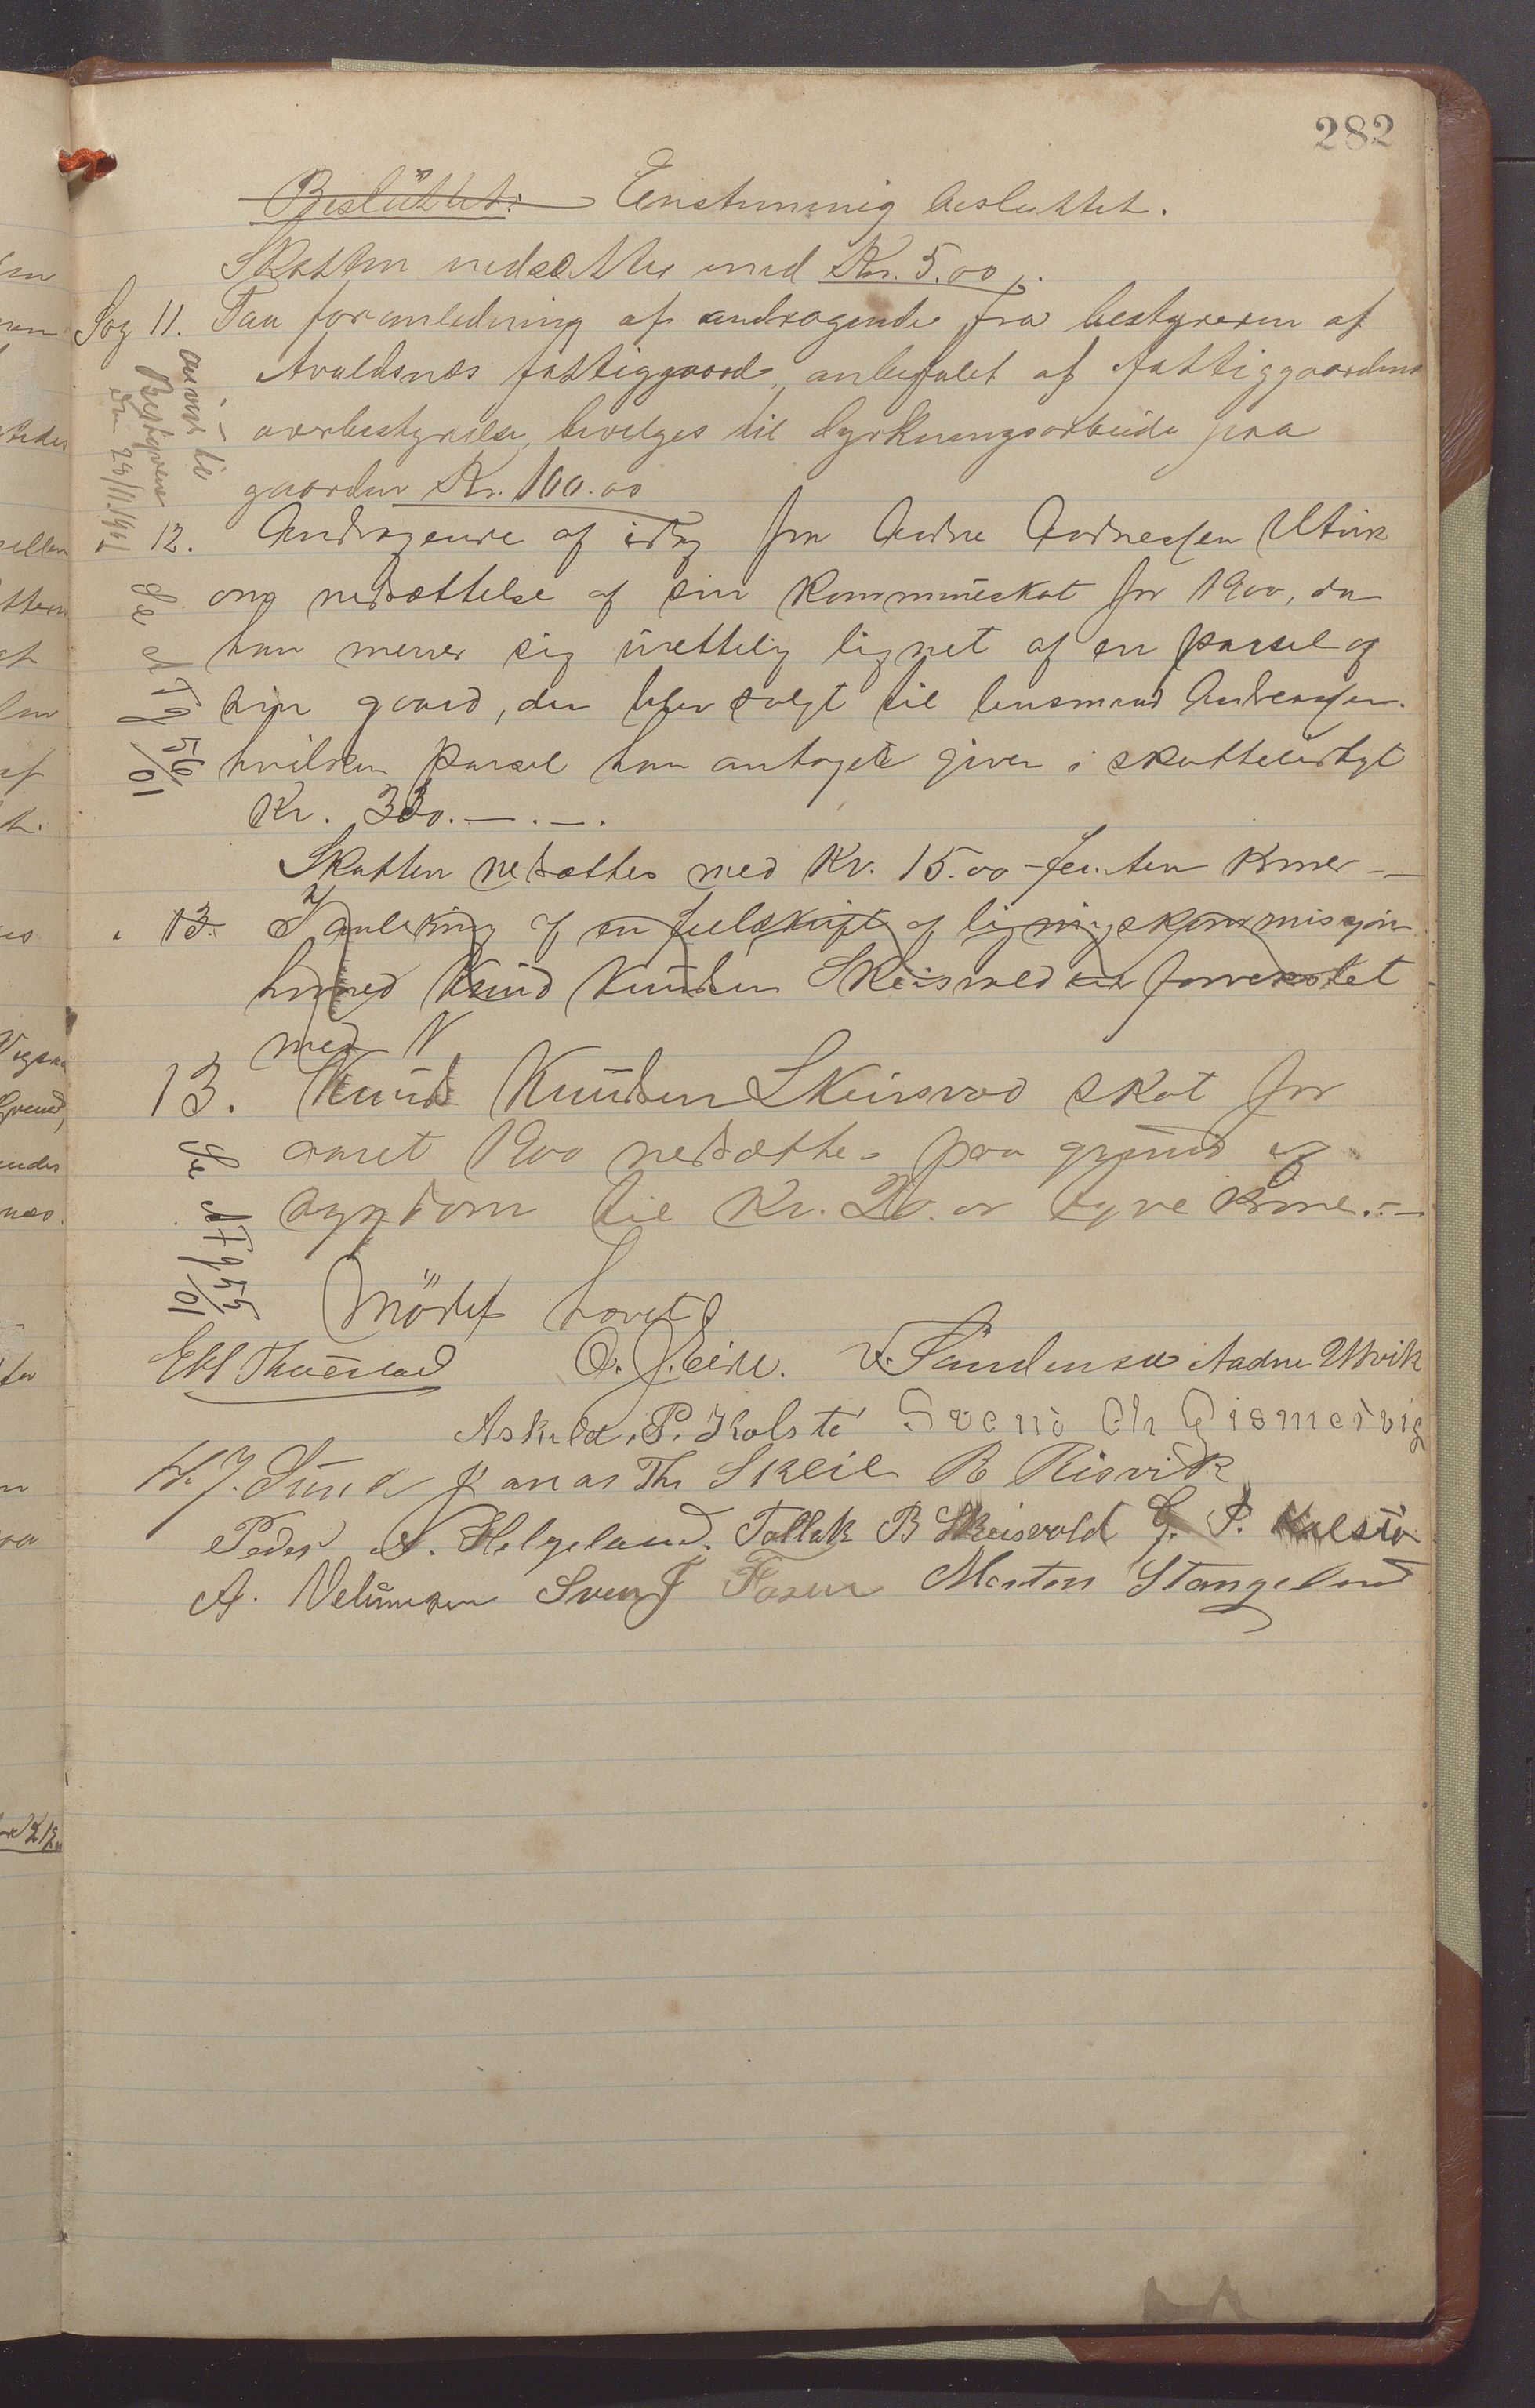 282
Besluttet: Enstemmig besluttet.
Skatten nedsættes med Kr. 5.00
Sag 11. Paa foranledning af andragende fra bestyreren af
Avaldsnæs fattiggaard, anbefalet af fattiggaardens
overbestyrelse, bevilges til dyrkningsarbeide paa
gaarden Kr. 100.00
anvist til
Bestyreren
den 29/11/1901
12. Andragende af idag fra Aadne Aadnessen Utvik
om nedsættelse af sin kommuneskat for 1900, da
han mener sig urettelig lignet af en parsel af
sin gaard, der blev solgt til lensmand Andreassen.
hvilken parsel han antagelig giver i skatteudbyt
Kr. 330.—.—.
Se A 56/01
Skatten nedsættes med Kr. 15.00 - femten kroner —
13. I anledning af en feilskrift af ligningskommissjon
hvorved Knud Knudsen Skeisvold er forvekslet
med N
13. Knud Knudsen Skeisvod skat for
aaret 1900 nedsættes paa grund af
sygdom til Kr. 20.00 tyve kroner.—
Se A 55/01
Mødet hævet
O. J. Eide. V. Aadne Utvik
Askild. P. Kolstø Sveni Ch Gismervig
H. J. Sund Jonas Th Skeie B Risvik
Peder N. Helgeland. Tollak B Skeisvold G. P. Kalstø
A. Velunsen Sven J Fosen Morten Stangeland